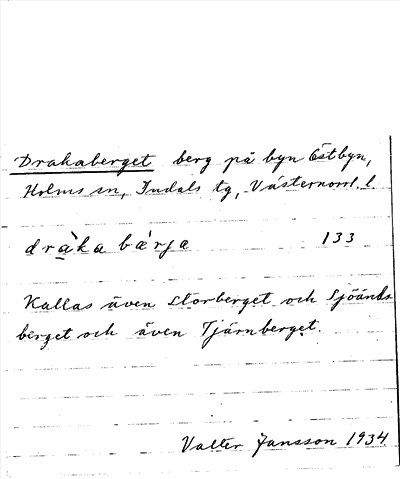 Drakaberget berg på byn Östbyn,
Holms sn, Indals tg, Västernorrl. l.
dràka bæ̀rja 133
Kallas även Storberget och Sjöänds
berget och även Tjärnberget.
Valter Jansson 1934